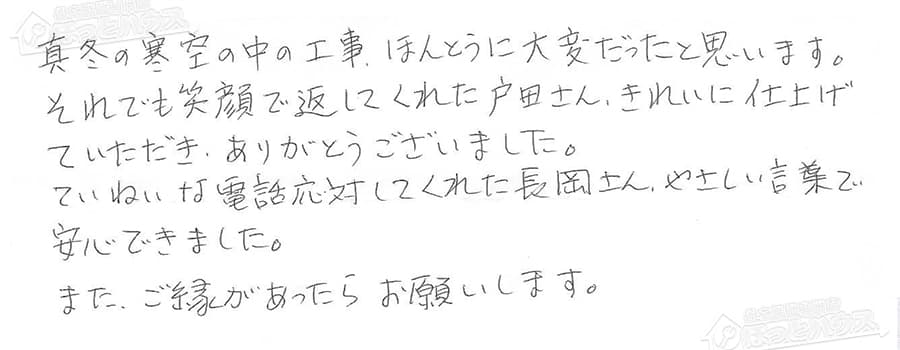 真冬の寒空の中の工事、ほんとうに大変だったと思います。
それでも笑顔で返してくれた戸田さん、きれいに仕上げ
ていただき、ありがとうございました。
ていねいな電話応対してくれた長岡さん、やさしい言葉で
安心できました。
また、ご縁があったらお願いします。
ほっとハウス